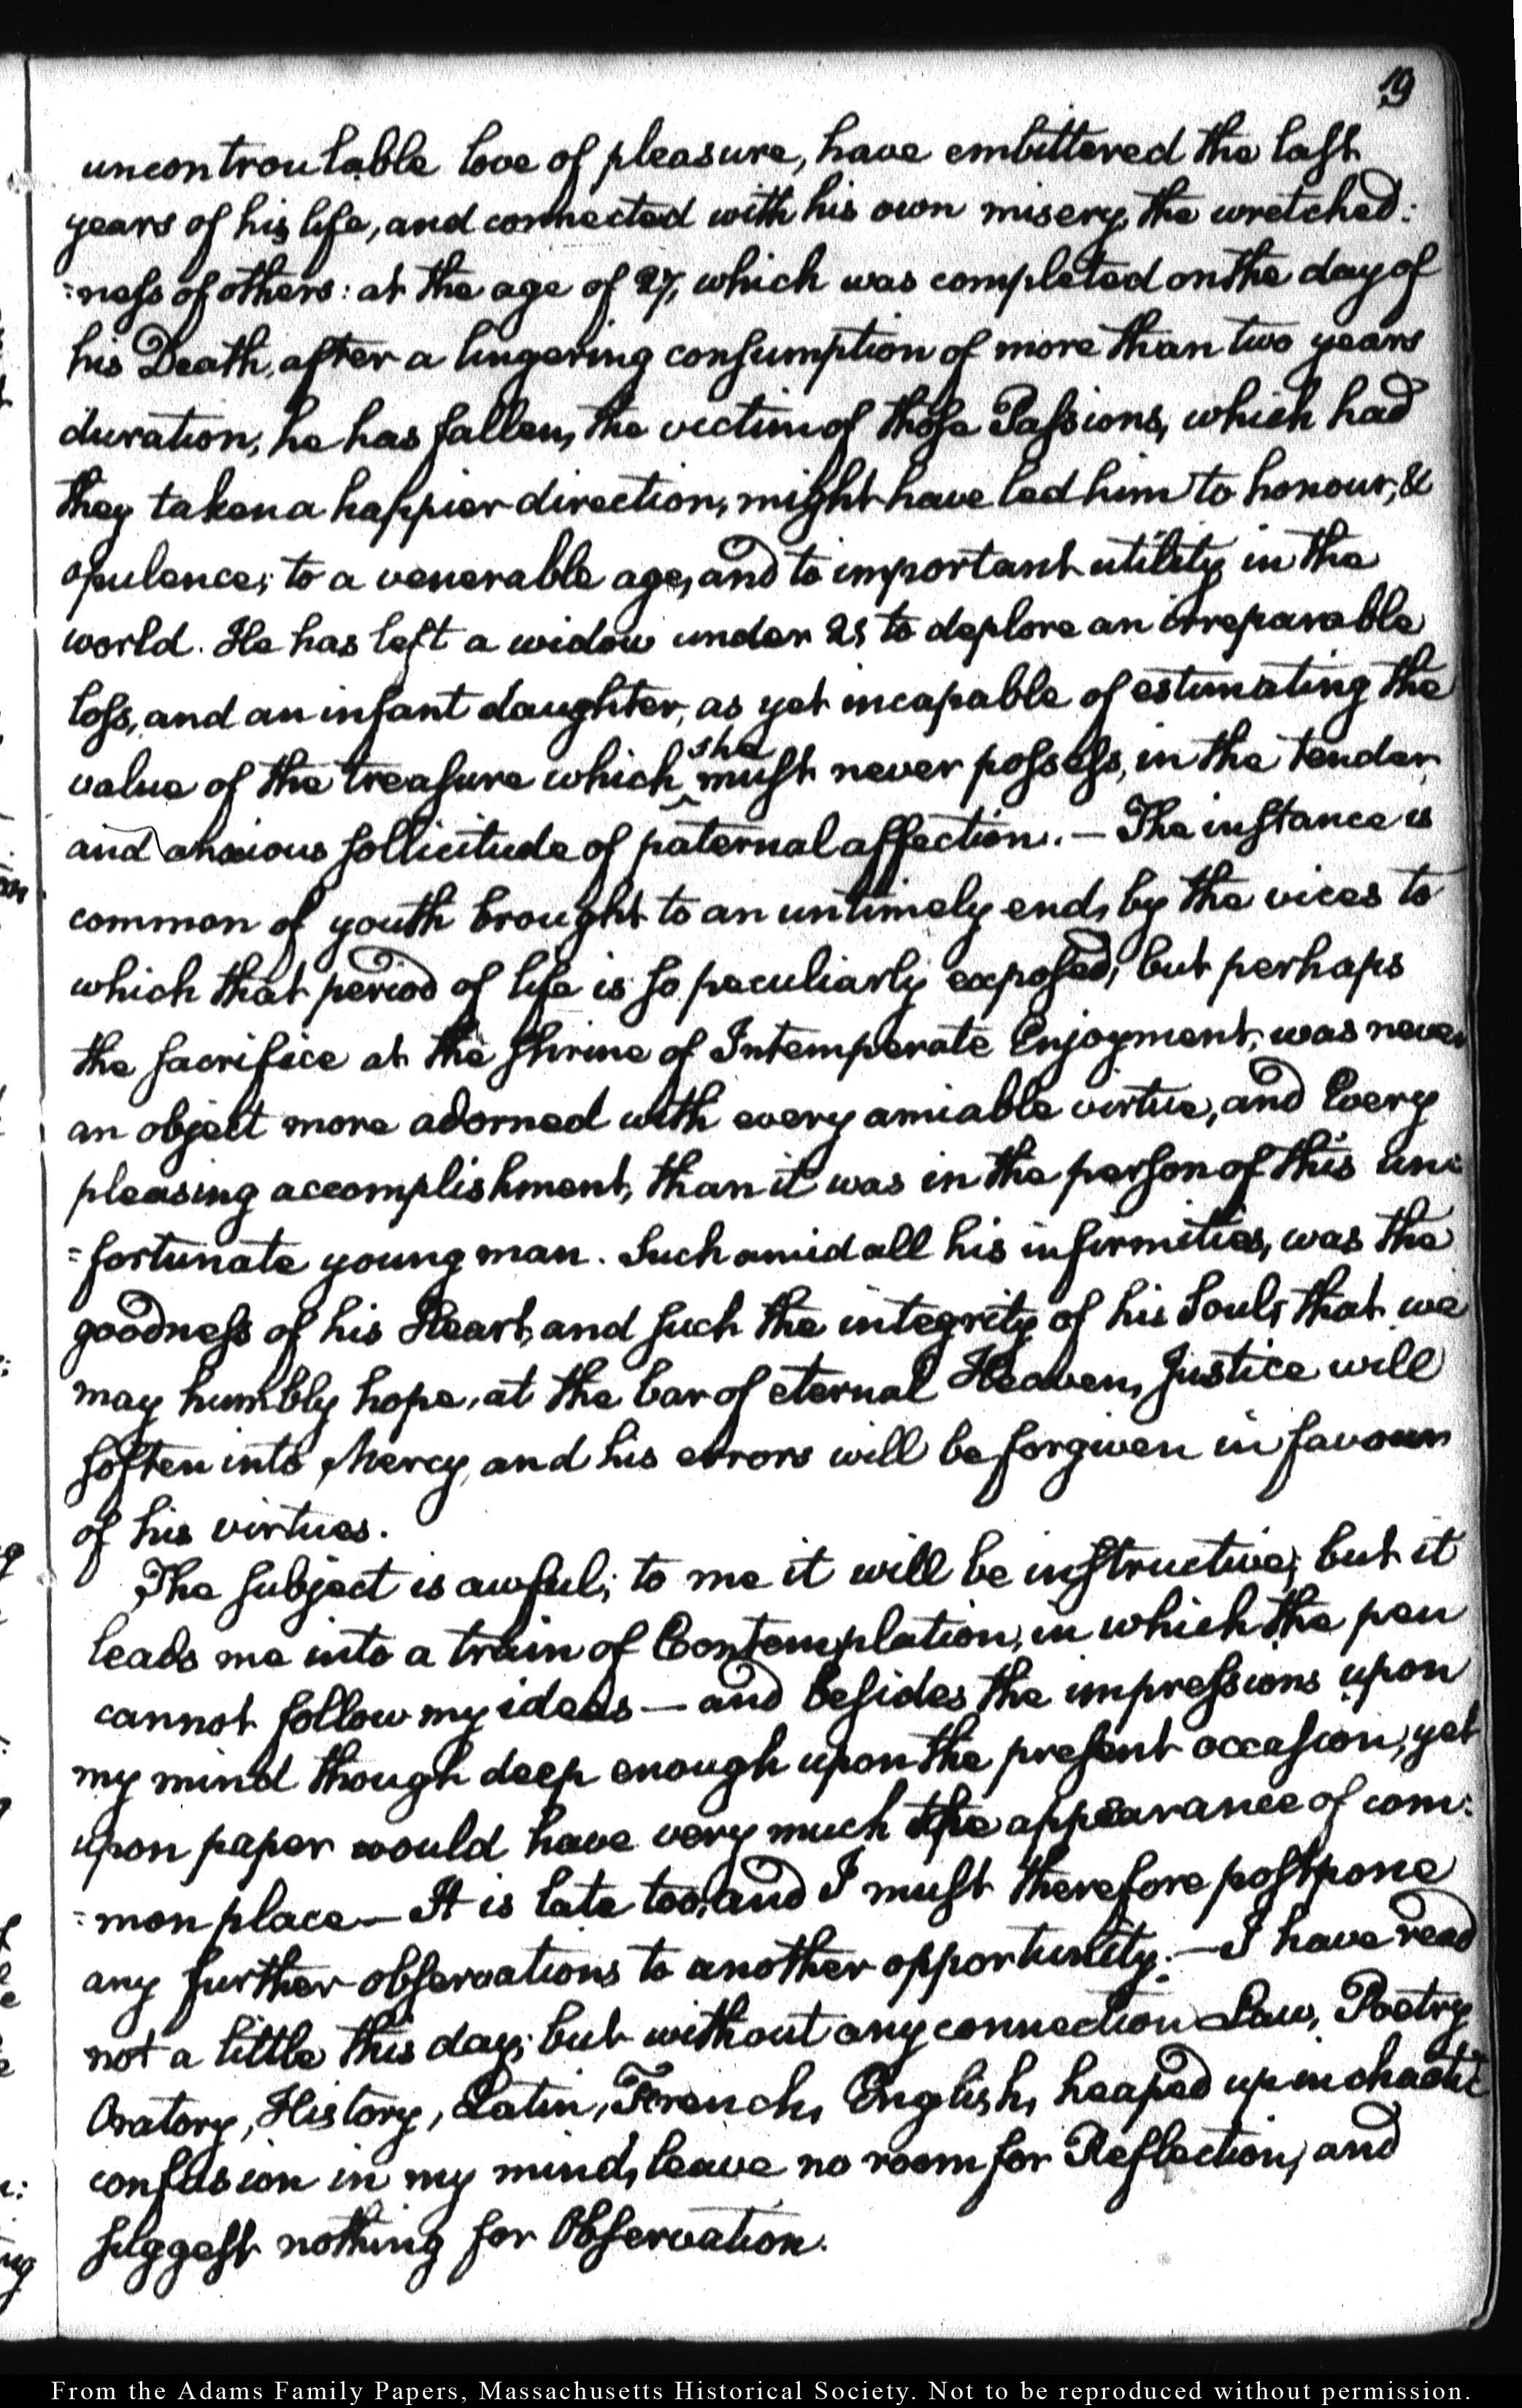 19
uncontroulable love of pleasure, have embittered the last
years of his life, and connected with his own misery, the wretched:
:ness of others: at the age of 27, which was completed on the day of
his Death, after a lingering consumption of more than two years
duration, he has fallen, the victim of those Passions, which had
they taken a happier direction, might have led him to honour, &
opulence; to a venerable age, and to important utility in the
world. He has left a widow under 21 to deplore an irreparable
loss, and an infant daughter, as yet incapable of estimating the
value of the treasure which she must never possess, in the tender
and anxious sollicitude of paternal affection. — The instance is
common of youth brought to an untimely end, by the vices to
which that period of life is so peculiarly exposed; but perhaps
the sacrifice at the shrine of Intemperate Enjoyment, was never
an object more adorned with every amiable virtue, and Every
pleasing accomplishment, than it was in the person of this un=
=fortunate young man. Such amid all his infirmities, was the
goodness of his Heart, and such the integrity of his Soul, that we
may humbly hope, at the bar of eternal Heaven, Justice will
soften into Mercy, and his errors will be forgiven in favour
of his virtues.
The subject is awful; to me it will be instructive; but it
leads me into a train of Contemplation, in which the pen
cannot follow my ideas — and besides the impressions upon
my mind though deep enough upon the present occasion, yet
upon paper would have very much the appearance of com:
:mon place — It is late too, and I must therefore postpone
any further observations to another opportunity. — I have read
not a little this day; but without any connection Law, Poetry
Oratory, History, Latin, French, English, heaped up in chaotic
confusion in my mind, leave no room for Reflection, and
suggest nothing for Observation.
From the Adams Family Papers, Massachusetts Historical Society. Not to be reproduced without permission.